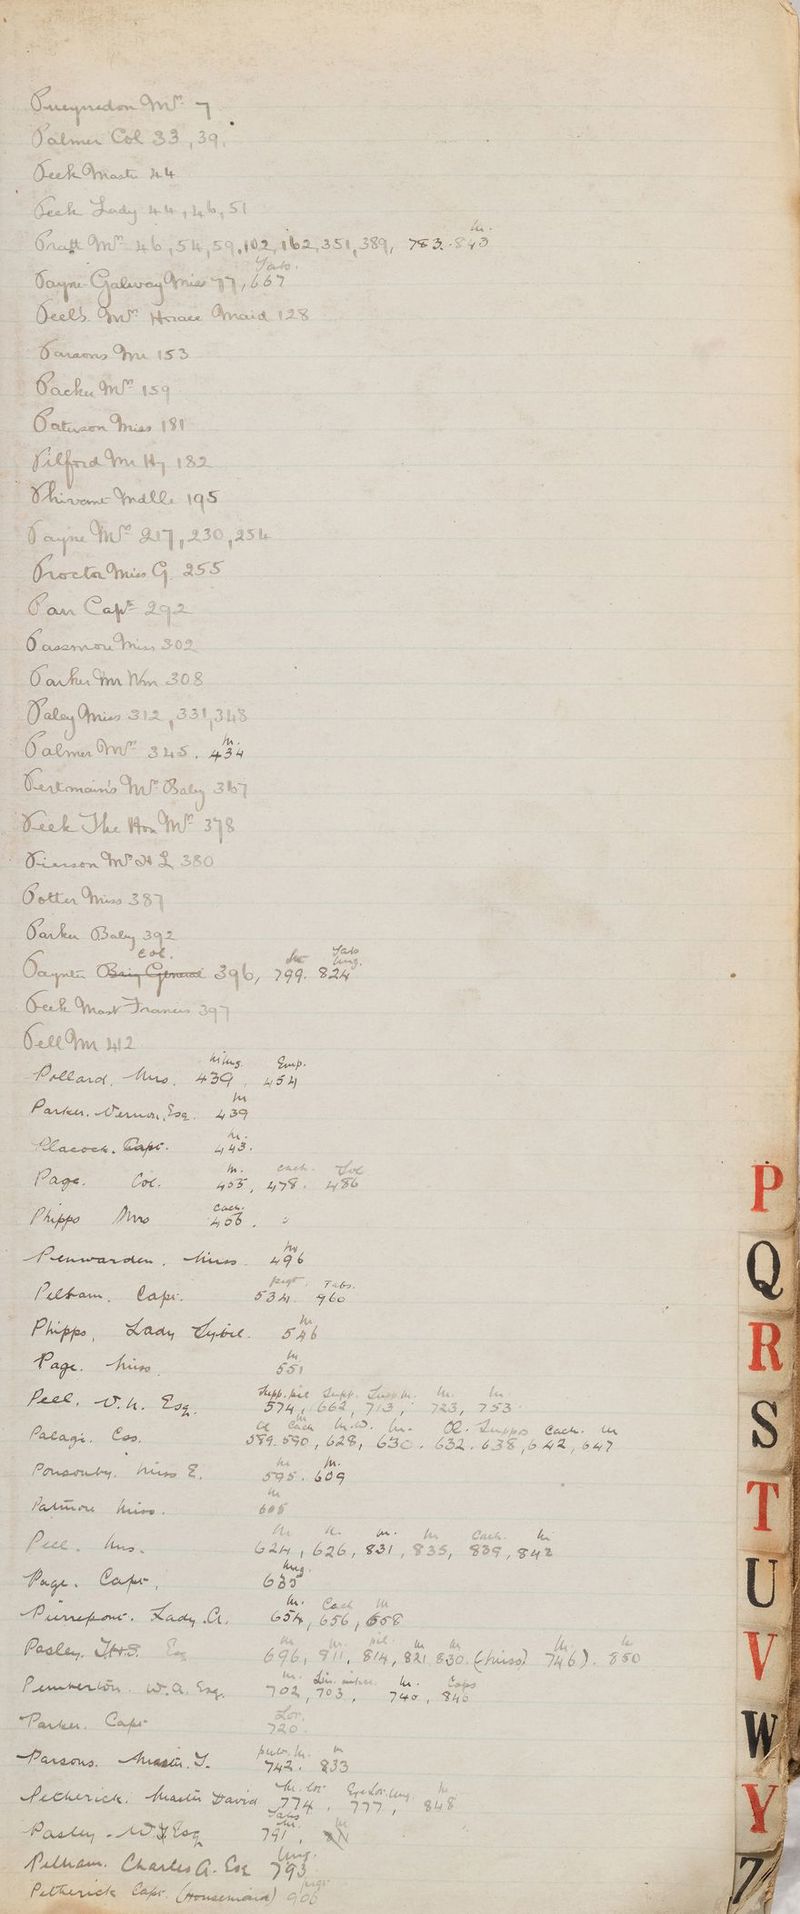 Palmer Col 33, 39.
Peek Master 44
Peek Lady 44, 46, 51
m.
Pratt Mrs 46, 54, 59, 102, 162, 351, 389, 783. 843
Tabs.
Payne Galwey Miss 77, 667
Peel's Mrs Horace Maid 128
Parsons Mr 153
Packer Mrs 159
Paterson Miss 181
Pilford Mr Hy 182
Mdlle 195
Payne Mrs 217, 230, 254
Proctor Miss G. 255
Parr Capt 292
Passmore Miss 302
Parker Mr Wm 308
Paley Miss 312, 331, 343
m.
Palmer Mrs 345. 434
Mrs Baby 367
Peek The Hon Mrs 378
Pierson Mrs H L 380
Potter Miss 387
Parker Baby 392
Col. Tabs
Ung.
Paynter Brig General 396, 799. 824
Peek Mast Francis 397
Pell Mr 412
Emp.
Pollard. Mrs. 439, 454
m
Parker. Vernon. Esq. 439
m.
Capt. 443.
m. cach. Sol
Page. Col. 455, 478. 486
cach.
Phipps Mrs 456.
m
Penwarden. Miss 496
Tabs.
Pelham. Capt. 534. 960
m.
Phipps, Lady Sybil. 546
m
Page. Miss 551
Supp. m. m.
Peel. V. H. Esq. 574, 662, 713, 723, 753
Ol. cach. m
Palagi. Css. 589. 590, 628, 630. 632. 638, 642, 647
m m.
Ponsonby. Miss E. 595. 609
m
Miss. 605
m m. m. m cach. m
Peel. Mrs. 624, 626, 831, 835, 839, 842
Ung.
Page. Capt. 635
m. Cach m
Pierrepont. Lady. A. 654, 656, 658
m m. pil. m m m. m
Pasley. Esq 696, 811, 814, 821, 830. (Miss) 746). 850
m. Lin. m. Caps
Pemberton. W. A. Esq. 702, 703, 740, 846
Lot.
Parker. Capt 720.
m. m
Parsons. Master. J. 742. 833
m. Lot m
Petherick. Master David 774, 777, 848
Tabs
m.
Pasley. Esq 791,
Ung.
Pelham. Charles A. Esq 793
Petherick Capt. (Housemaid) 906
P
Q
R
S
T
U
V
W
Y
Z